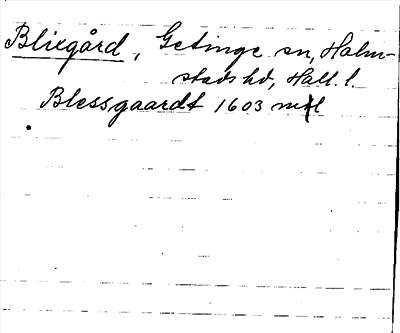 Blixgård, Getinge sn, Halm-
stads hd, Hall. l.
Blessgaardt 1603 mtl